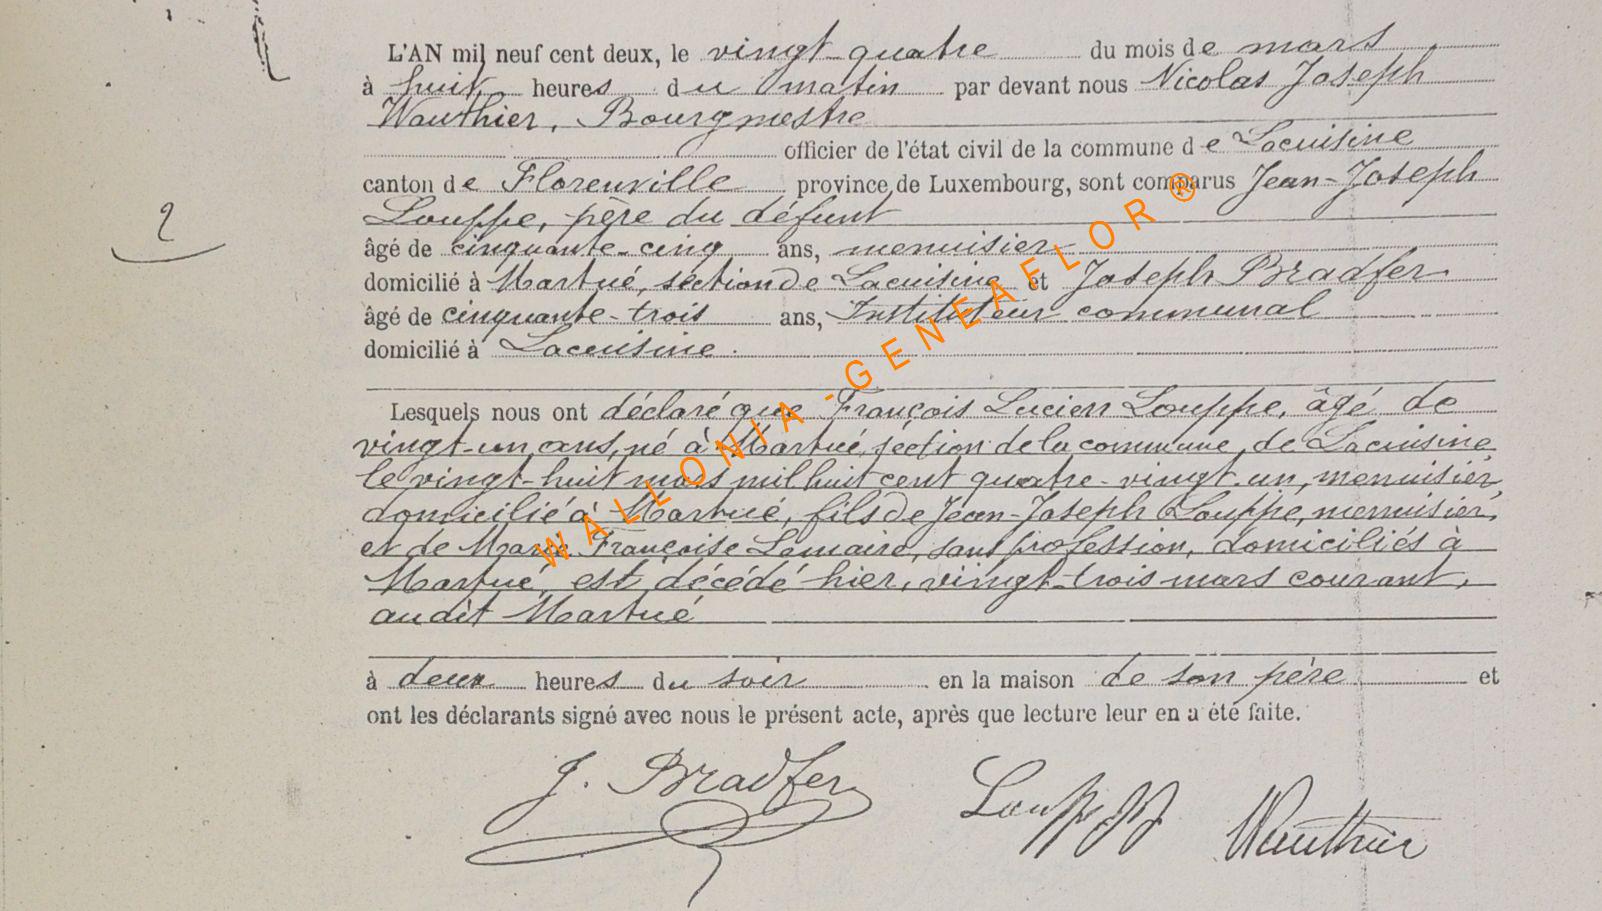 L'AN mil neuf cent deux, le vingt-quatre du mois de mars
à huit heures du matin par devant nous Nicolas Joseph
Wauthier, Bourgmestre
officier de l'état civil de la commune de Lacuisine
canton de Florenville province de Luxembourg, sont comparus Jean-Joseph
Louppe, père du défunt
âgé de cinquante-cinq ans, menuisier
domicilié à Martué, section de Lacuisine et Joseph Bradfer
âgé de cinquante-trois ans, Instituteur communal
domicilié à Lacuisine.
2
Lesquels nous ont déclaré que François Lucien Louppe, âgé de
vingt-un ans, né à Martué, section de la commune de Lacuisine,
le vingt-huit mars mil huit cent quatre-vingt-un, menuisier,
domicilié à Martué, fils de Jean-Joseph Louppe, menuisier,
et de Marie Françoise Lemaire, sans profession, domiciliés à
Martué, est décédé hier, vingt-trois mars courant,
audit Martué
à deux heures du soir en la maison de son père et
ont les déclarants signé avec nous le présent acte, après que lecture leur en a été faite.
J. Bradfer Louppe JJ Wauthier
WALLONIA-GENEAFLOR ®